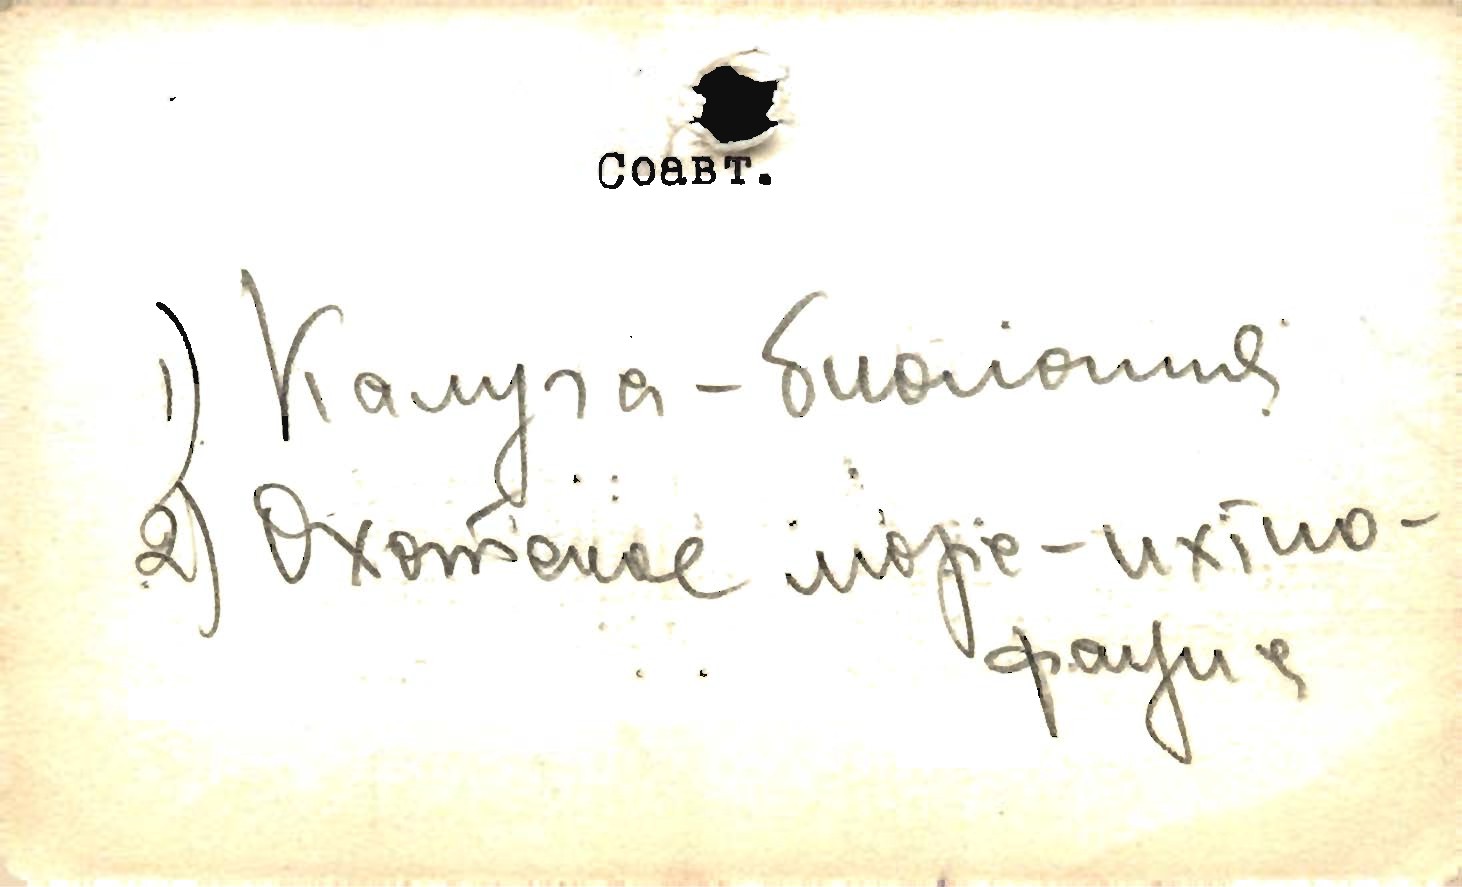 Соавт.
1) Калуга - биология
2) Охотское море - ихтио-
фауна